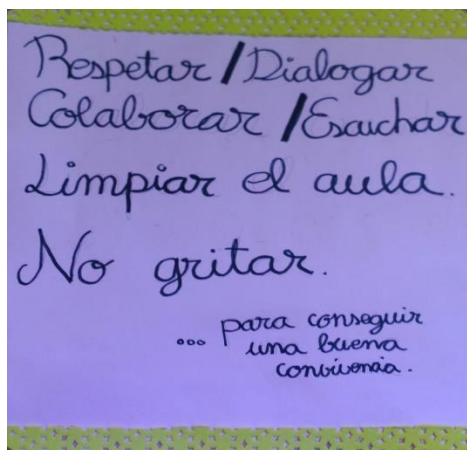 Respetar / Dialogar
Colaborar / Escuchar
Limpiar el aula.
No gritar.
... para conseguir
una buena
convivencia.